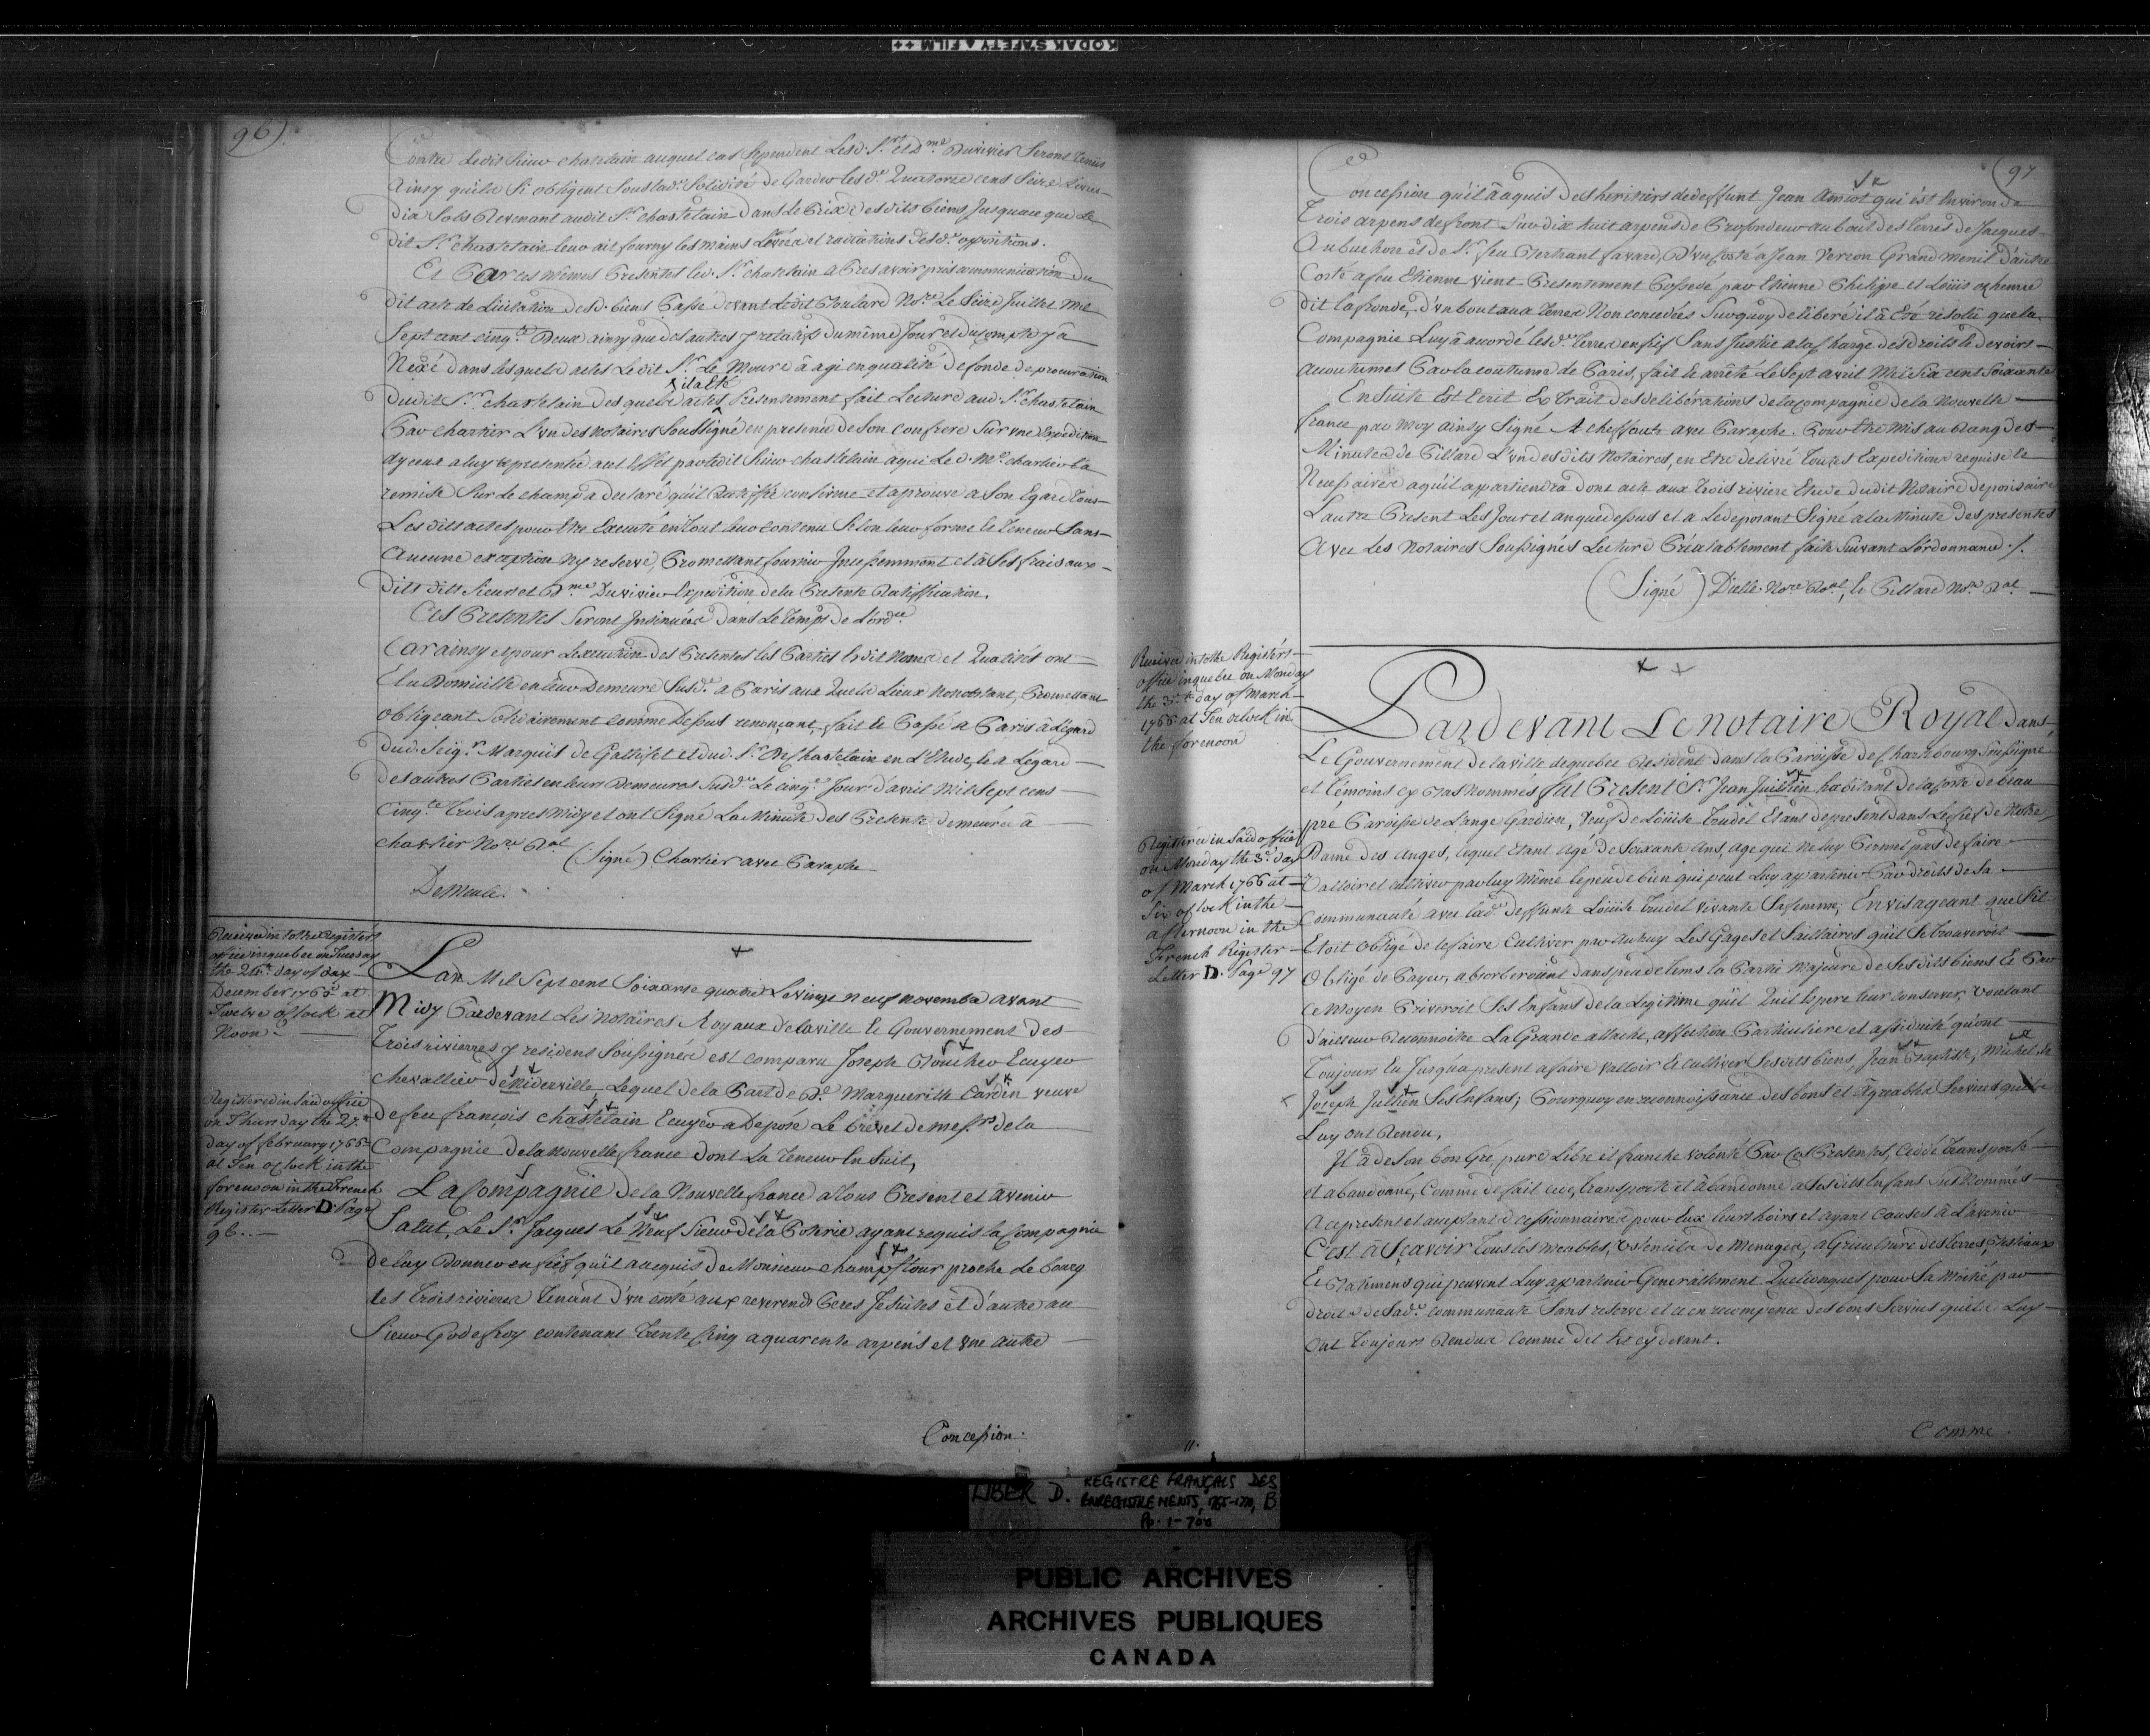 KODAK SAFETY FILM ++
96).
Contre Ledit Sieur chatelain auquel cas Cependent Lesd. Sr. et Dme Duvivier Seront Tenus
Ainsy qu'ils Si obligent Sous lade. Solidité de Garder lesde. Quatorze cens Seize Livres
dix Sols Revenant audit Sr. chastelain dans le Prix desdits biens Jusquace que Le
dit Sr. Chastelain leur ait fourny les mains Levées et radiations desde. oppositions.
Et Par ces mêmes Presentes led. Sr. chatelain apres avoir pris communication du
dit acte de Licitation desd. biens Passé devant Ledit Nore. Le Seize Juillet mil
Sept cent cinqte. Deux ainsy que des autres y relatifs du même Jour et du compte y a
Nexé dans lesquels actes Ledit Sr. Le Moure à agi en qualité de fondé de procuration
dudit Sr. chastelain desquels actes il a Eté Presentement fait Lecture aud. Sr. chastelain
Par chartier L'un des Notaires Soussigné en presence de Son Confrere Sur une Expedition
dyceux a luy representée a cet Effet par ledit Sieur chastelain a qui Led. Me. chartier l'a
remise Sur Le champ a declaré qu'il Ratiffie confirme et aprouve a Son Egard tous
Lesdits actes pour Etre Executé en Tout leur contenu Selon leur forme et Teneur Sans
Aucune exception Ny reserve, Promettant fournir Incessemment et à Ses frais aux
dits dits Sieur et Dme Duvivier Expedition de la Presente Ratiffication.
Ces Presentes Seront Insinuées dans Le Temps de L'ordce
Car ainsy et pour Lexecution des Presentes les Parties Esdits Noms et Qualités ont
Elu Domicille en leur Demeure Susde. a Paris aux Quels Lieux Nonobstant, Promettant
Obligeant Solidairement comme Dessus renonçant, fait et Passé a Paris à L'égard
dud. Seigr. Marquis de Gallifet et dud. Sr. De Chastelain en L'Etude, et a Legard
des autres Parties en leurs Demeures Susde. Le cinqe. Jour d'avril Mil Sept cens
Cinqte. trois apres Midy et ont Signé La Minute des Presente demeurée à
chartier Nore Ral (Signé) Chartier avec Paraphe
DeMeule.
Received into the Registers
office in quebec on Tuesday
the 24th. day of day
December 1765 at
Twelve o'clock at
Noon.
Lan Mil Sept cent Soixante quatre Le vingt neuf novembre avant
Midy Pardevant Les Notaires Royaux de la ville et Gouvernement des
Trois rivierres y residens Soussignés est comparu Joseph Boucher Ecuyer
chevallier de Niderville Lequel de la Part de De. Marguerite Cardin veuve
Registered in Said office
on Thursday the 27th.
day of february 1766
at Ten o'clock in the
forenoon in the French
Register Letter D. Page
96..
de feu françois chastelain Ecuyer a Deposé Le brevet de messrs de la
Compagnie de la Nouvelle france dont La Teneur En Suit,
La Compagnie de la Nouvelle france a tous Present et à venir
Salut, Le Sr. Jacques Le Neuf Sieur de la Poterie ayant requis la Compagnie
de luy Donner en fief qu'il a acquis de Monsieur champflour proche Le bourg
des trois rivieres Tenant d'un coté aux reverends Peres Jesuites et d'autre au
Sieur Godefroy contenant Trente Cinq a quarente arpens et une autre
Concession.
97
Concession qu'il à aquis des heritiers de deffunt Jean Amiot qui est Environ de
Trois arpens de front Sur dix huit arpens de Profondeur au bout des Terres de Jacques
Aubuchon et de Sr. feu Bertrant favard, D'un costé a Jean Veron Grandmenil d'autre
Costé a feu Etienne vient Presentement Possedé par Etienne Philippe et Loüis
dit lafronde, d'un bout aux terres Non concedées Surquoy deliberé il à Eté résolu que la
Compagnie Luy à accordé lesde. Terres en fief Sans Justice a la charge des droits et devoirs
accoutumés Par la coutume de Paris, fait et arrêté Le Sept avril Mil Six cent Soixante
Ensuite Est Ecrit Extrait des deliberations de la Compagnie de la Nouvelle
france par Moy ainsy Signé A cheffault avec Paraphe. Pour Etre Mis au Rang des
Minutes de Pillard L'un desdits Notaires, en Etre delivré toutes Expeditions requise et
Necessaires a qu'il appartiendra dont acte aux trois riviere Etude dudit Notaire depositaire
Lautre Present Les Jour et an que dessus et a Le deposant Signé a la Minute des presentes
avec Les Notaires Soussignés Lecture Préalablement faite Suivant L'ordonnance./.
(Signé) Dielle Nore Ral, et Pillard Nore Ral
Received into the Registers
office in quebec on Monday
the 3d. day of March
1766 at Ten oclock in
the forenoon
Pardevant Le notaire Royal dans
Le Gouvernement de la ville de quebec Resident dans la Paroisse de Charlebourg Soussigné
et Témoins cy bas Nommés fut Present Sr. Jean Juillien habitant de la Coste de beau
pré Paroisse de L'ange Gardien, Veuf de Loüise Trudel Etant de present dans Le fief de Notre
Registered in Said office
on Monday the 3d. day
of March 1766 at
Six o'clock in the
afternoon in the
French Register
Letter D. Page 97
Dame des Anges, lequel Etant Agé de Soixante Ans, age qui ne luy Permet pas de faire
valloir et cultiver par luy Même le peu de bien qui peut Luy appartenir Par droits de Sa
Communauté avec lade. deffunte Loüise Trudel vivante Sa femme; Envisageant que S'il
Etoit obligé de le faire Cultiver par Autruy Les Gages et Saillaires qu'il Se trouveroit
Obligé de Payer, absorberoient dans peu de tems la Partie Majeure de Sesdits biens et Par
Ce Moyen Priveroit Ses Enfans de la Legitime qu'il Espere leur conserver, voulant
D'ailleurs Reconnoitre La Grande attache, affection Particuliere et assiduité qu'ont
Toujours Eu Jusqu'a present a faire valloir et cultiver Sesdits biens, Jean Baptiste, Michel et
Joseph Jullien Ses Enfans; Pourquoy en reconnoissance des bons et Agreables Services qu'ils
Luy ont Rendu,
Il à de Son bon Gré, pure Libre et franche volonté Par Ces Presentes, Cedé Transporté
et abandonné, Comme de fait cede, transporte et abandonne a Sesdits Enfans Sus Nommés
A ce present et acceptant cessionnaires pour Eux leurs hoirs et ayant Causes à L'avenir
C'est à Sçavoir tous les meubles, Ustencils de Menages, agriculture des terres, Bestiaux
Et Batimens qui peuvent Luy appartenir Generallement Quelconques pour Sa Moitié par
droit de Sade. communauté Sans reserve et ce en recompense des bons Services qu'ils Luy
ont Toujours Rendus Comme dit Est cy devant.
Comme.
11.
LIBER D. REGISTRE FRANÇAIS DES
ENREGISTREMENTS, 1765-1770, B
Pp. 1-700
PUBLIC ARCHIVES
ARCHIVES PUBLIQUES
CANADA